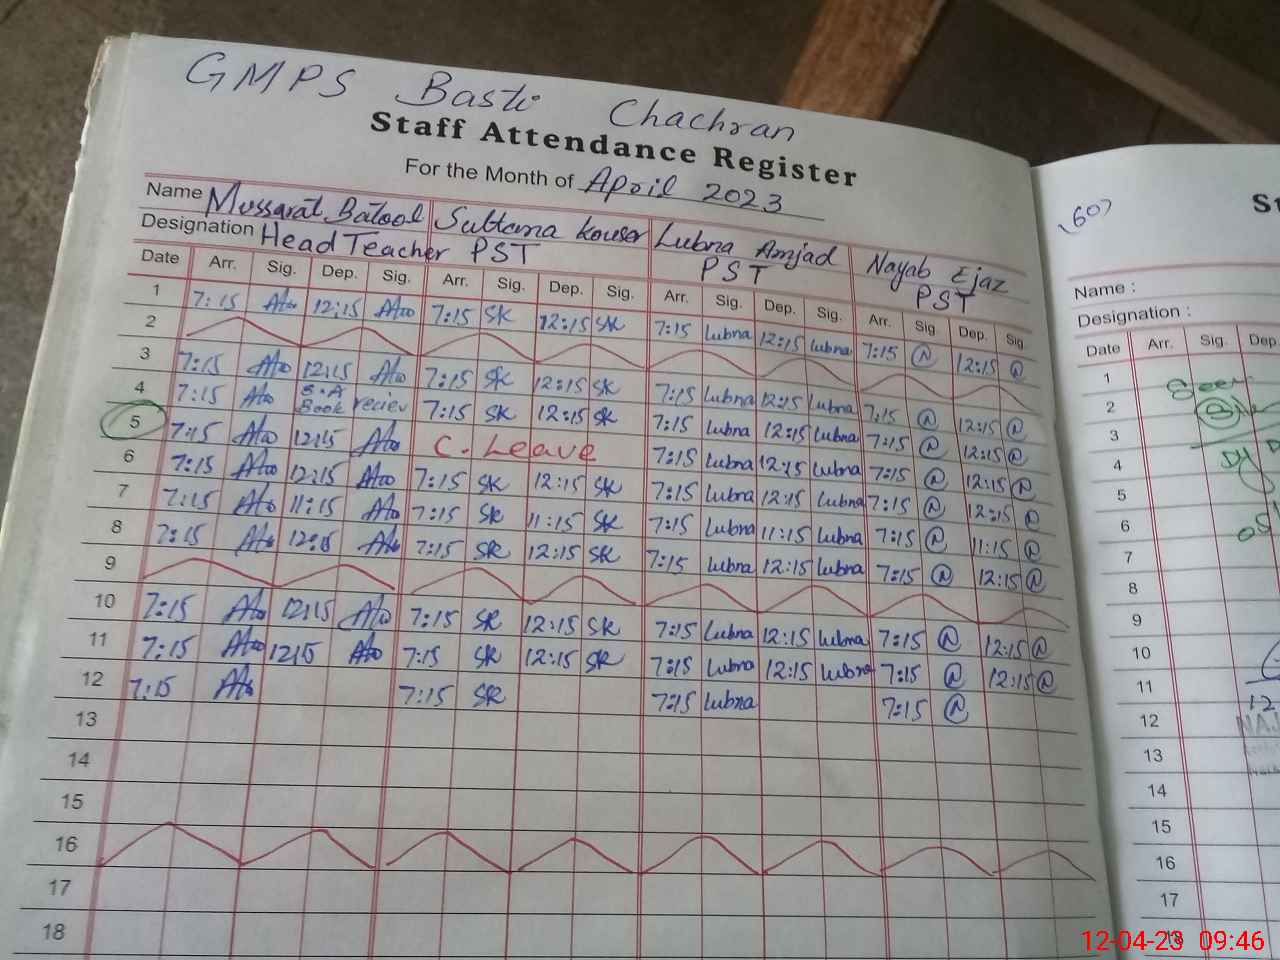 GMPS Basti Chachran
Staff Attendance Register
For the Month of April 2023
Name Mussarat Batool Sultana Kouser Lubna Amjad Nayab Ejaz
Designation Head Teacher PST PST PST
Date Arr. Sig. Dep. Sig. Arr. Sig. Dep. Sig. Arr. Sig. Dep. Sig. Arr. Sig. Dep. Sig.
1 7:15 12:15 7:15 SK 12:15 SK 7:15 Lubna 12:15 Lubna 7:15 12:15
2
3 7:15 12:15 7:15 SK 12:15 SK 7:15 Lubna 12:15 Lubna 7:15 12:15
4 7:15 Book 7:15 SK 12:15 SK 7:15 Lubna 12:15 Lubna 7:15 12:15
5 7:15 12:15 C. Leave 7:15 Lubna 12:15 Lubna 7:15 12:15
6 7:15 12:15 7:15 SK 12:15 SK 7:15 Lubna 12:15 Lubna 7:15 12:15
7 7:15 11:15 7:15 SK 11:15 SK 7:15 Lubna 11:15 Lubna 7:15 11:15
8 7:15 12:15 7:15 SK 12:15 SK 7:15 Lubna 12:15 Lubna 7:15 12:15
9
10 7:15 12:15 7:15 SK 12:15 SK 7:15 Lubna 12:15 Lubna 7:15 12:15
11 7:15 12:15 7:15 SK 12:15 SK 7:15 Lubna 12:15 Lubna 7:15 12:15
12 7:15 7:15 SK 7:15 Lubna 7:15
13
14
15
16
17
18
St
Name :
Designation :
Date Arr. Sig. Dep.
1
2
3
4
5
6
7
8
9
10
11
12
13
14
15
16
17
18
12-04-23 09:46